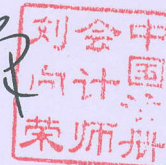 中国注册
会计师
刘卢荣